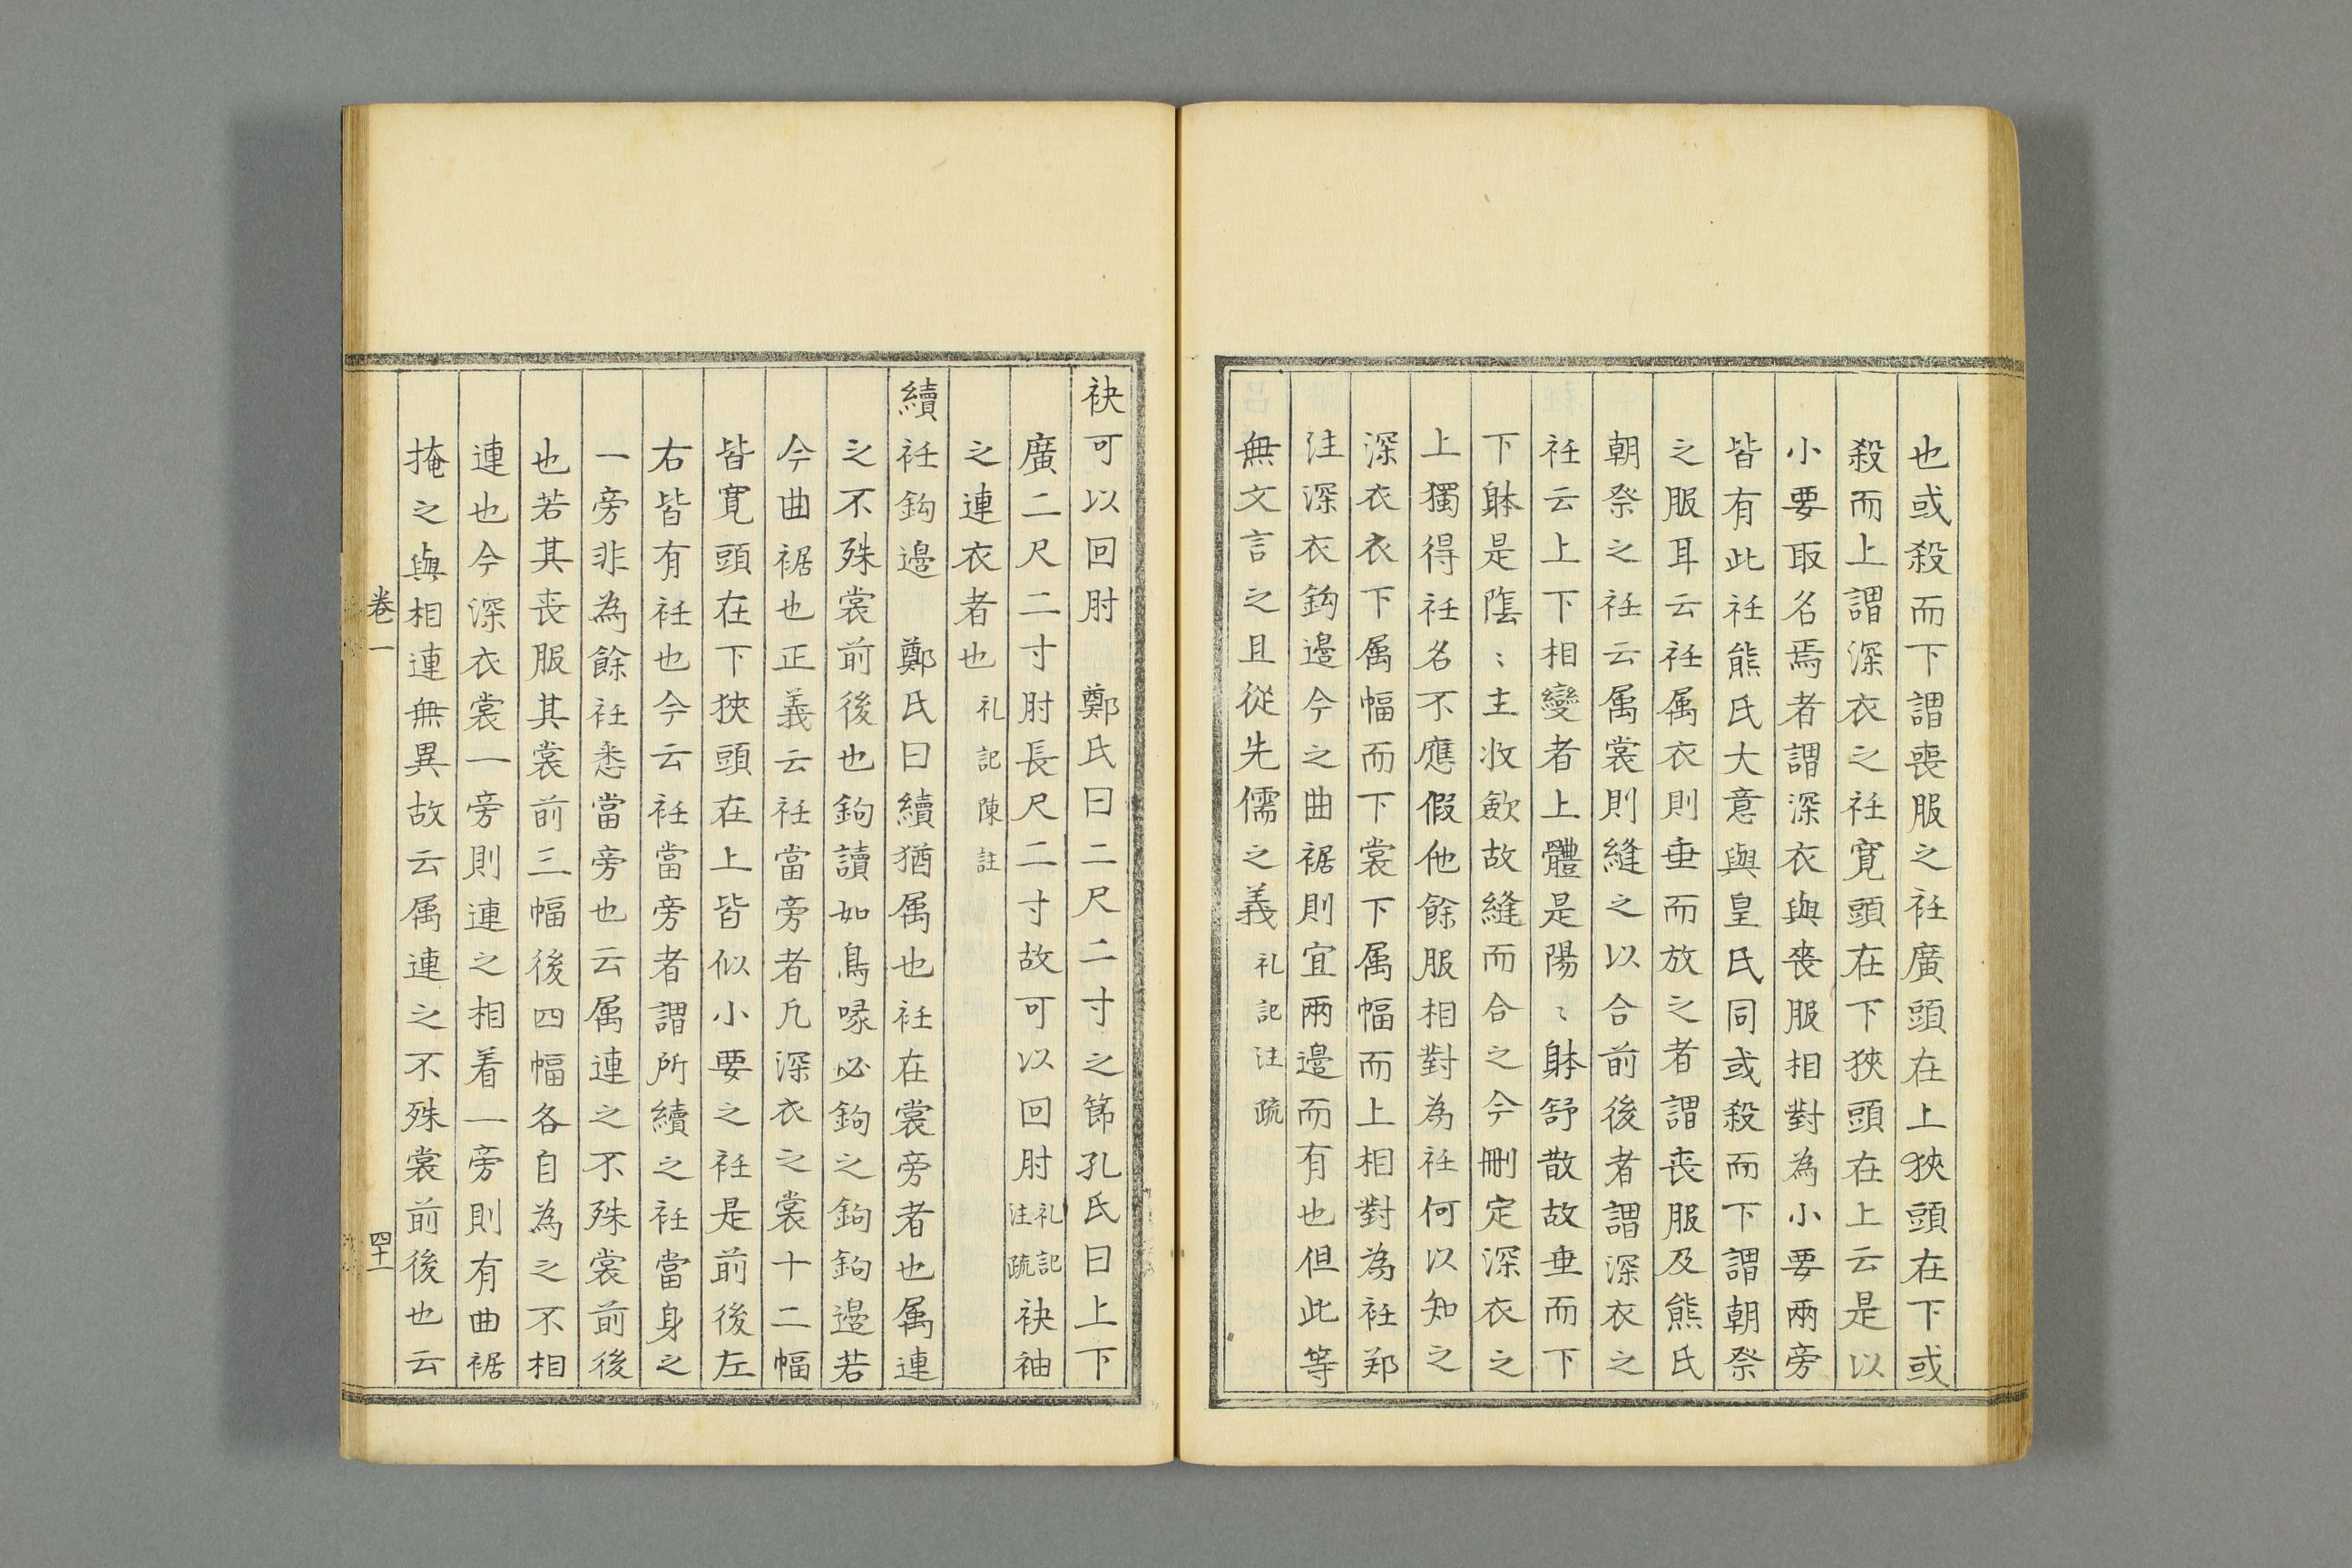 也或殺而下謂喪服之衽廣頭在上狹頭在下或
殺而上謂深衣之衽寬頭在下狹頭在上云是以
小要取名焉者謂深衣與喪服相對為小要兩旁
皆有此衽熊氏大意與皇氏同或殺而下謂朝祭
之服耳云衽属衣則垂而放之者謂喪服及熊氏
朝祭之衽云属裳則縫之以合前後者謂深衣之
衽云上下相變者上體是陽〻躰舒散故垂而下
下躰是隂〻主收歛故縫而合之今刪定深衣之
上獨得衽名不應假他餘服相對為衽何以知之
深衣衣下属幅而下裳下属幅而上相對為衽郑
注深衣鈎邉今之曲裾則宜兩邉而有也但此等
無文言之且從先儒之義礼記注疏
袂可以回肘 鄭氏曰二尺二寸之節孔氏曰上下
廣二尺二寸肘長尺二寸故可以回肘礼記注疏袂袖
之連衣者也礼記陳註
續衽鈎邉 鄭氏曰續猶属也衽在裳旁者也属連
之不殊裳前後也鉤讀如鳥喙必鉤之鉤鉤邉若
今曲裾也正義云衽當旁者凡深衣之裳十二幅
皆寬頭在下狹頭在上皆似小要之衽是前後左
右皆有衽也今云衽當旁者謂所續之衽當身之
一旁非為餘衽悉當旁也云属連之不殊裳前後
也若其喪服其裳前三幅後四幅各自為之不相
連也今深衣裳一旁則連之相着一旁則有曲裾
掩之與相連無異故云属連之不殊裳前後也云
卷一
四十一